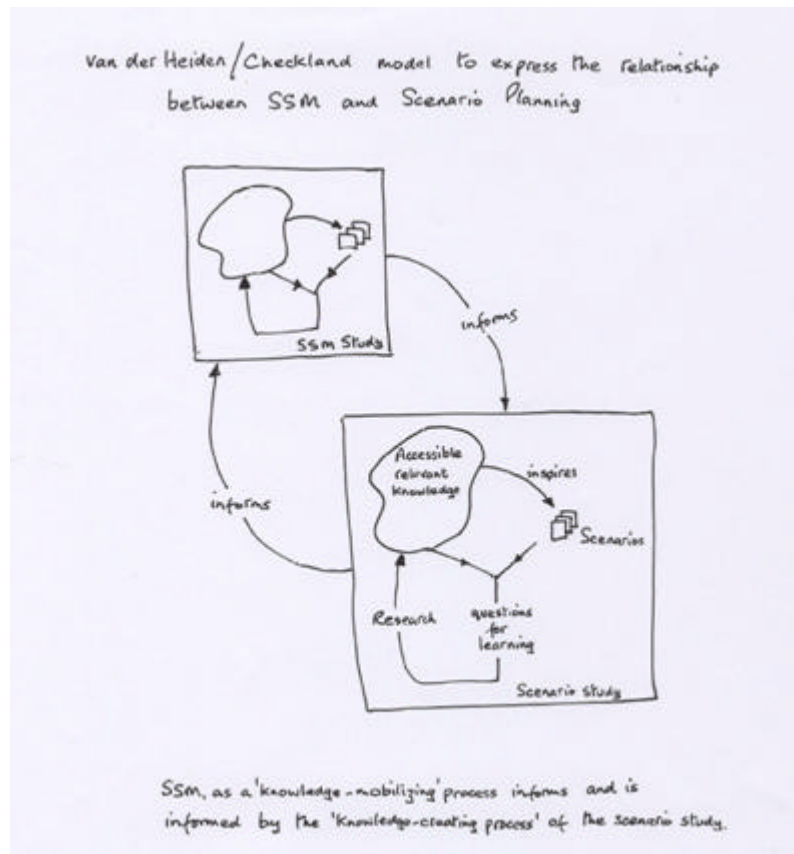 van der Heiden/Checkland model to express the relationship
between SSM and Scenario Planning
SSM Study
informs
informs
Accessible
relevant
knowledge
inspires
Scenarios
Research
questions
for
learning
Scenario study
SSM, as a 'knowledge-mobilizing' process informs and is
informed by the 'knowledge-creating process' of the scenario study.